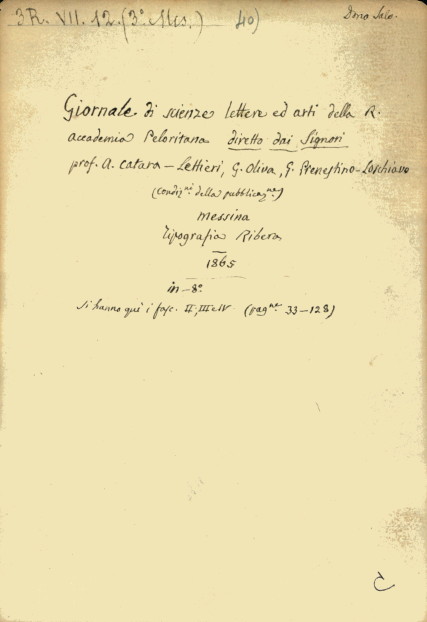 3R. VII. 12. (3.º Mes.) 40)
Dono Salo.
Giornale di scienze lettere ed arti della R.
accademia Peloritana diretto dai Signori
prof. A. Catara-Lettieri, G. Oliva, G. Prenestino-Loschiavo
(Condiz.ni della pubblicaz.ne)
Messina
Tipografia Ribera
1865
in-8º
Si hanno quì i fasc. II, III e IV (pag.ne 33-128)
C